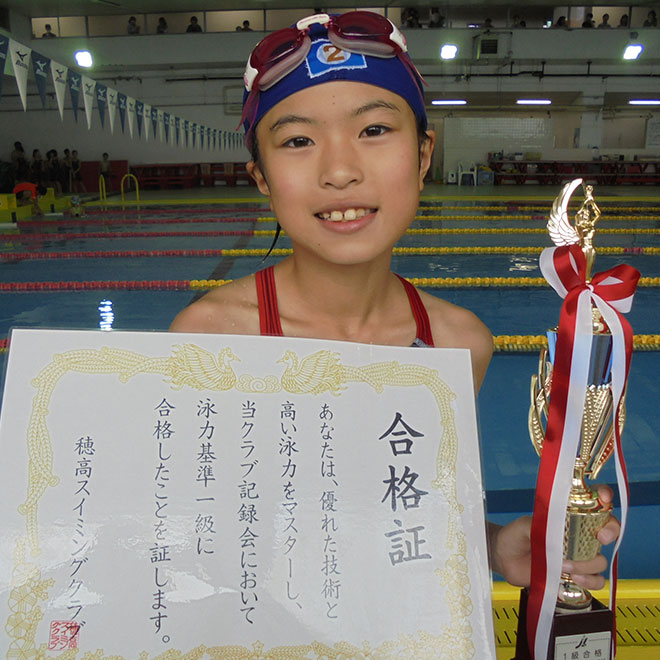 合格証
あなたは、優れた技術と
高い泳力をマスターし、
当クラブ記録会において
泳力基準一級に
合格したことを証します。
穂高スイミングクラブ
2
1級合格